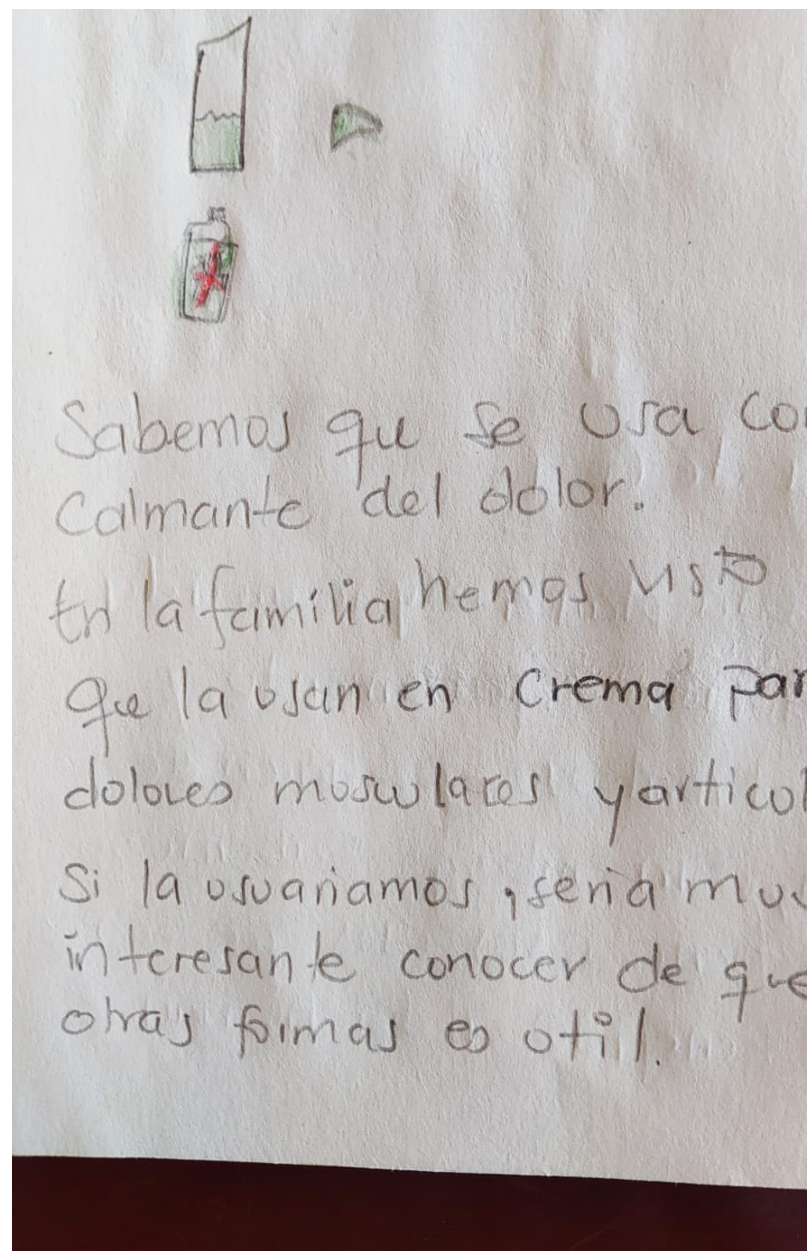 Sabemos que se usa co
Calmante del dolor.
En la familia hemos visto
que la usan en crema par
dolores musculares y articul
Si la usuariamos, seria muc
interesante conocer de que
otras formas es util.